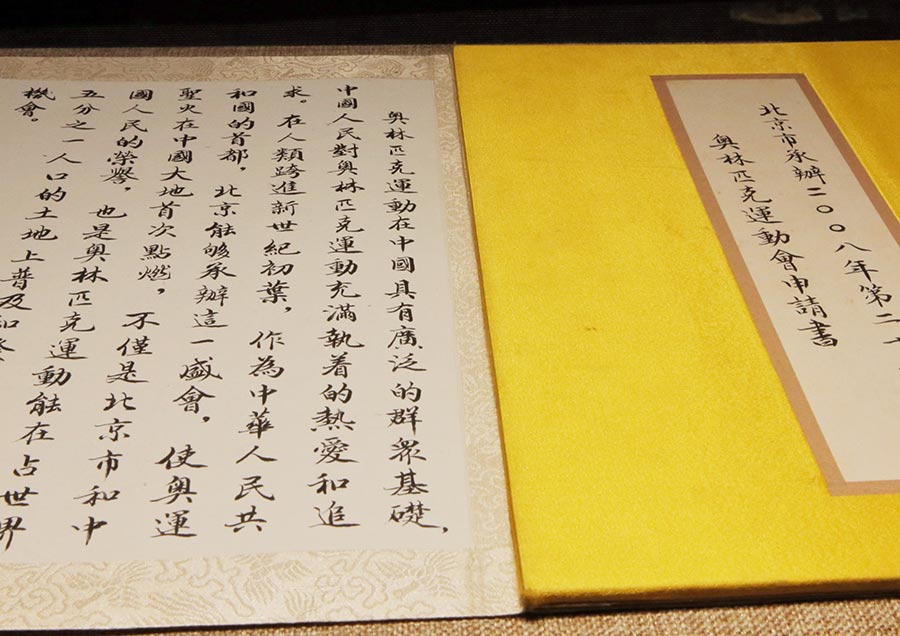 北京市承辦二〇〇八年第二十
奧林匹克運動會申請書
奧林匹克運動在中國具有廣泛的群眾基礎，
中國人民對奧林匹克運動充滿執着的熱愛和追
求。在人類跨進新世紀初葉，作為中華人民共
和國的首都，北京能够承辦這一盛會，使奧運
聖火在中國大地首次點燃，不僅是北京市和中
國人民的榮譽，也是奧林匹克運動能在占世界
五分之一人口的土地上普及和發
機會。